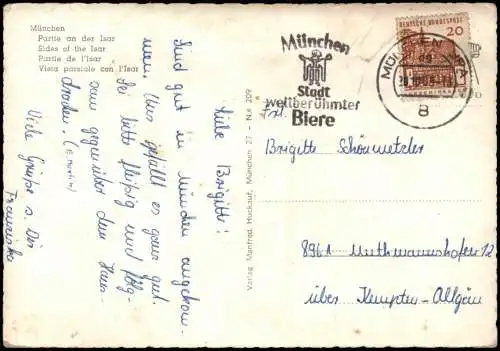 München
Partie an der Isar
Sides of the Isar
Partie de l'Isar
Vista parziale con l'Isar
Liebe Brigitte!
Sind gut in München angekom-
men. Uns gefällt es ganz gut.
Sei bitte fleißig und folg-
sam gegenüber dem Haus-
drachen.
Viele Grüße s. Dir
Franziska
Verlag Manfred Huckauf, München 27 - Nr. 209
München
Stadt
weltberühmter
Biere
DEUTSCHE BUNDESPOST
20
MÜNCHEN
8
Frl.
Brigitte Schönmetzler
8961 Muthmannshofen 12
über Kempten-Allgäu